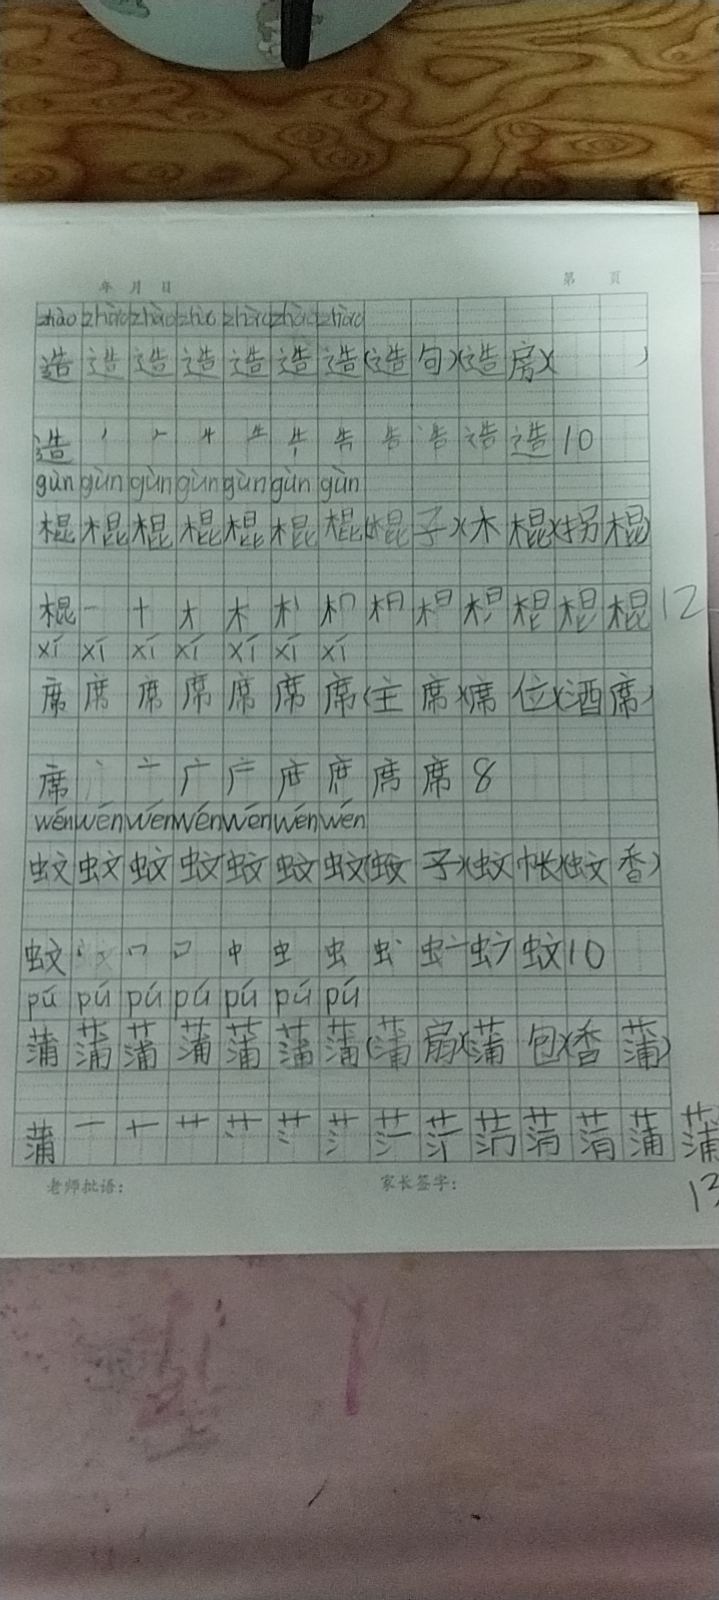 年 月 日 第 页
zhào zhào zhào zhào zhào zhào zhào
造 造 造 造 造 造 造 (造 句) (造 房) ( )
造 告 告 造 造 10
gùn gùn gùn gùn gùn gùn gùn
棍 棍 棍 棍 棍 棍 棍 (棍 子) (木 棍) (拐 棍)
棍 一 十 才 木 棍 棍 12
xí xí xí xí xí xí xí
席 席 席 席 席 席 席 (主 席) (席 位) (酒 席)
席 丶 亠 广 席 8
wén wén wén wén wén wén wén
蚊 蚊 蚊 蚊 蚊 蚊 蚊 (蚊 子) (蚊 帐) (蚊 香)
蚊 丨 口 中 虫 虫 蚊 10
pú pú pú pú pú pú pú
蒲 蒲 蒲 蒲 蒲 蒲 蒲 (蒲 扇) (蒲 包) (香 蒲)
蒲 一 十 艹 蒲 蒲
13
老师批语: 家长签字: